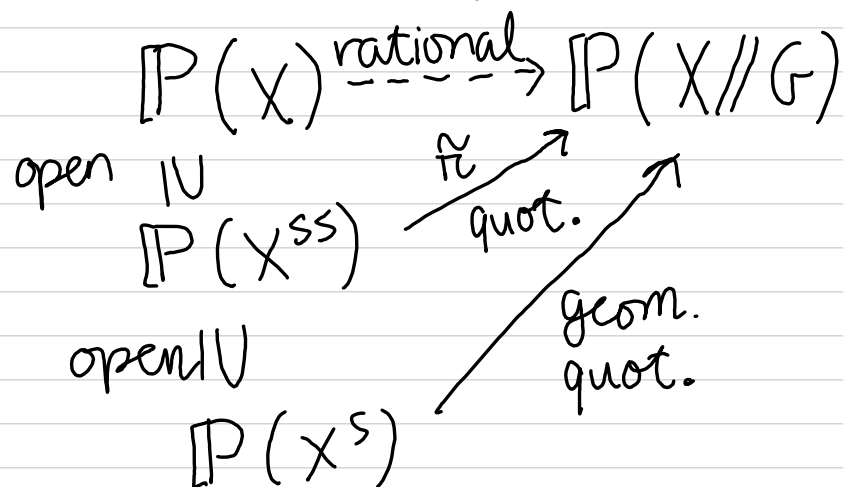 ℙ(X) rational ⇢ ℙ(X//G)
open ⊇ π̃
ℙ(X^{ss}) quot.
open ⊇ geom.
quot.
ℙ(X^s)